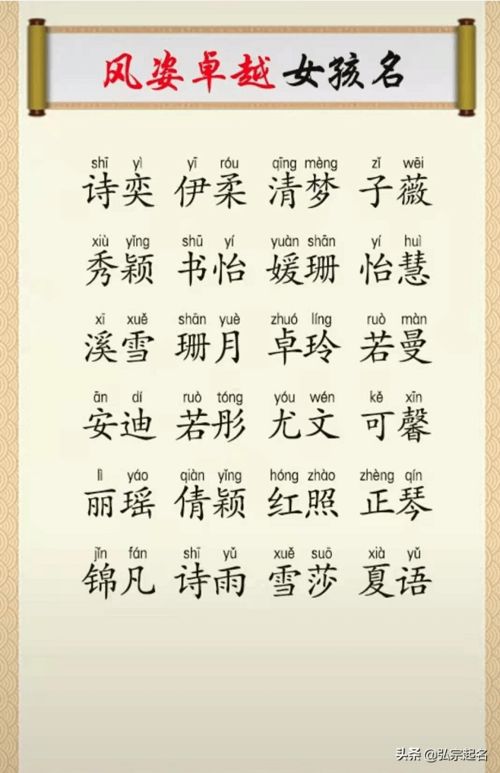 风姿卓越女孩名
shī yì yī róu qīng mèng zǐ wēi
诗奕 伊柔 清梦 子薇
xiù yǐng shū yí yuàn shān yí huì
秀颖 书怡 媛珊 怡慧
xī xuě shān yuè zhuó líng ruò màn
溪雪 珊月 卓玲 若曼
ān dí ruò tóng yóu wén kě xīn
安迪 若彤 尤文 可馨
lì yáo qiàn yǐng hóng zhào zhèng qín
丽瑶 倩颖 红照 正琴
jǐn fán shī yǔ xuě suō xià yǔ
锦凡 诗雨 雪莎 夏语
头条 @弘宗起名